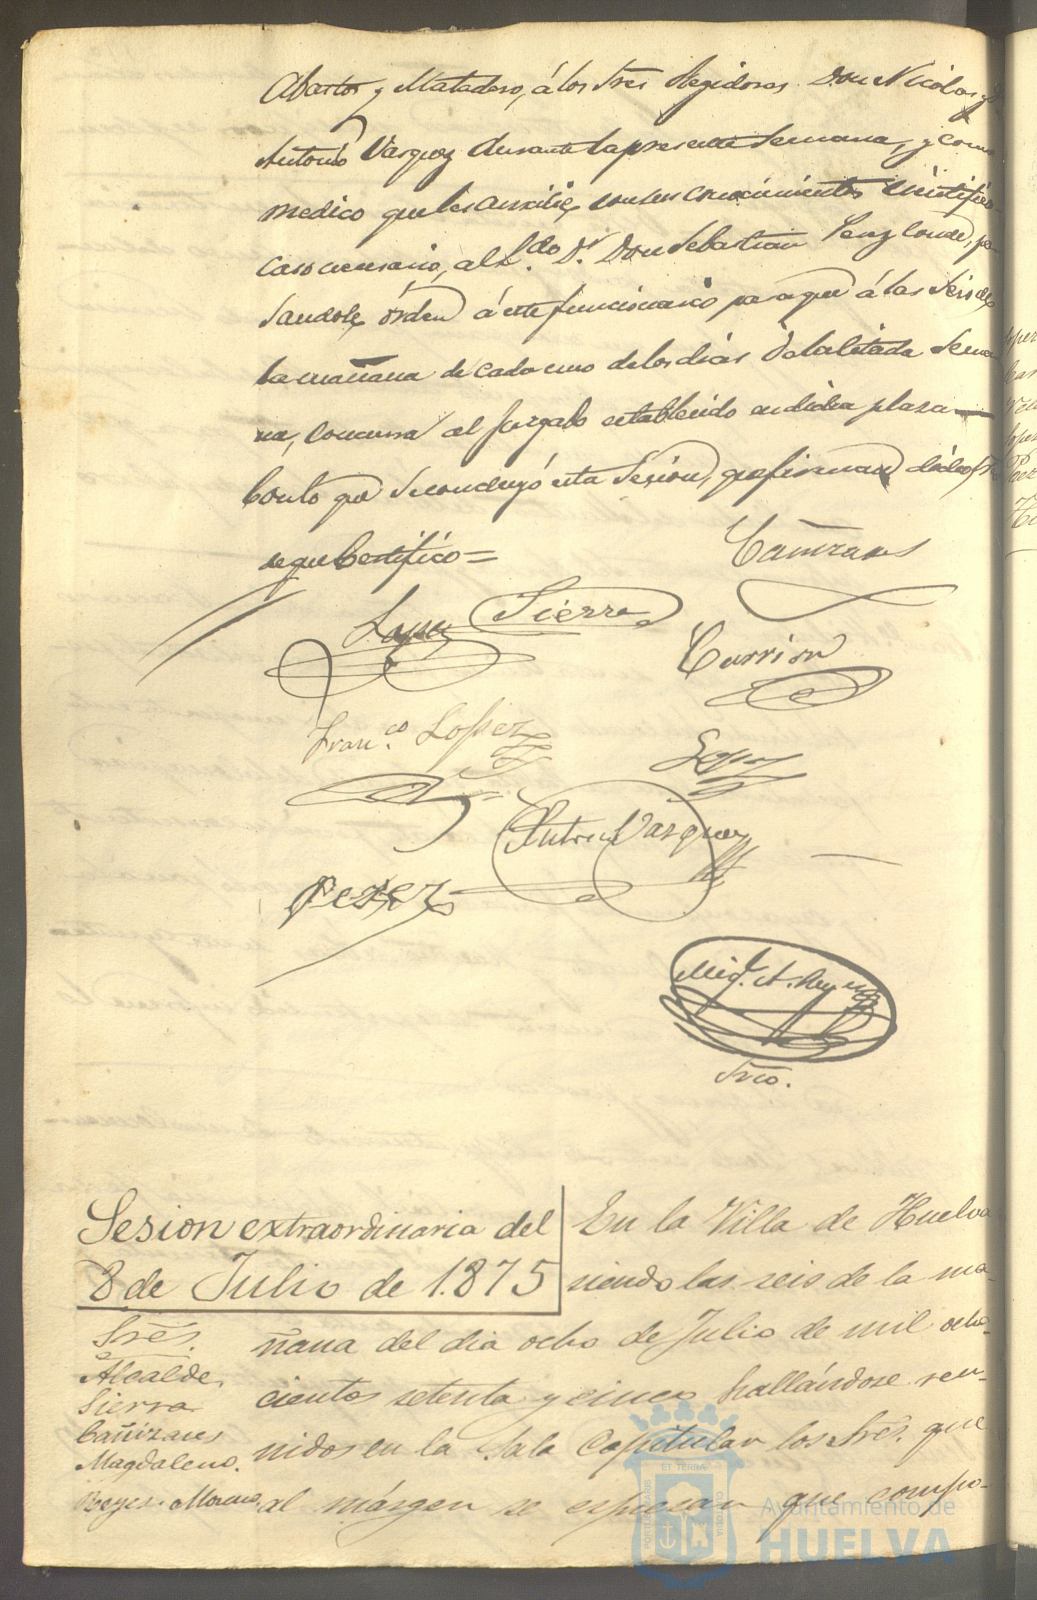 Abastos y Matadero, á los Sres Regidores Don Nicolas y D.
Antonio Vazquez durante la presente semana, y como
medico que les auxilie, con sus conocimientos cientificos
caso necesario, al L.do D.r Don Sebastian Perez Conde, pa-
sandole órden á este funcionario para que á las seis de
la mañana de cada uno de los dias de la citada Sema-
na, concurra al Juzgado establecido en dicha plaza —
Con lo que se concluyó esta Sesion, que firman dichos
de que Certifico =
Cañizares
Lopez Sierra
Carrion
Fran.co Lopez
Lopez
Anto Vazquez
Perez
Mig. A.
Srio.
Sesion extraordinaria del
8 de Julio de 1.875
Sres.
Alcalde.
Sierra
Cañizares
Magdaleno.
Reyes. Moreno
En la Villa de Huelva
siendo las seis de la ma-
ñana del dia ocho de Julio de mil ocho-
cientos setenta y cinco hallándose reu-
nidos en la Sala Capitular los Sres. que
al márgen se espresan que compo-
Ayuntamiento de
HUELVA